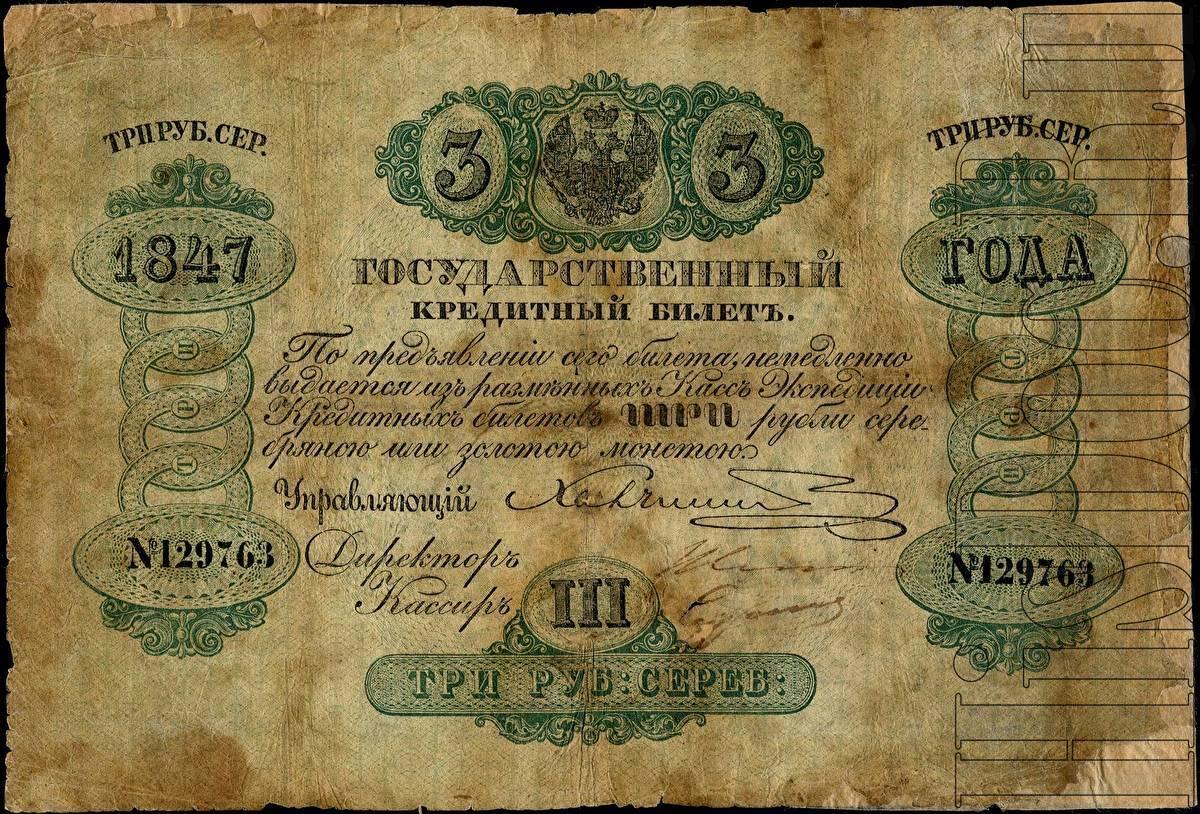 ТРИ РУБ. СЕР.
3 3
ТРИ РУБ. СЕР.
1847
ГОДА
ГОСУДАРСТВЕННЫЙ
КРЕДИТНЫЙ БИЛЕТЪ.
По предъявленіи сего билета, немедленно
выдается изъ размѣнныхъ Кассъ Экспедиціи
Кредитныхъ билетовъ ТРИ рубли сере-
бряною или золотою монетою.
Управляющій
Директоръ
Кассиръ
№129763
№129763
III
ТРИ РУБ: СЕРЕБ: